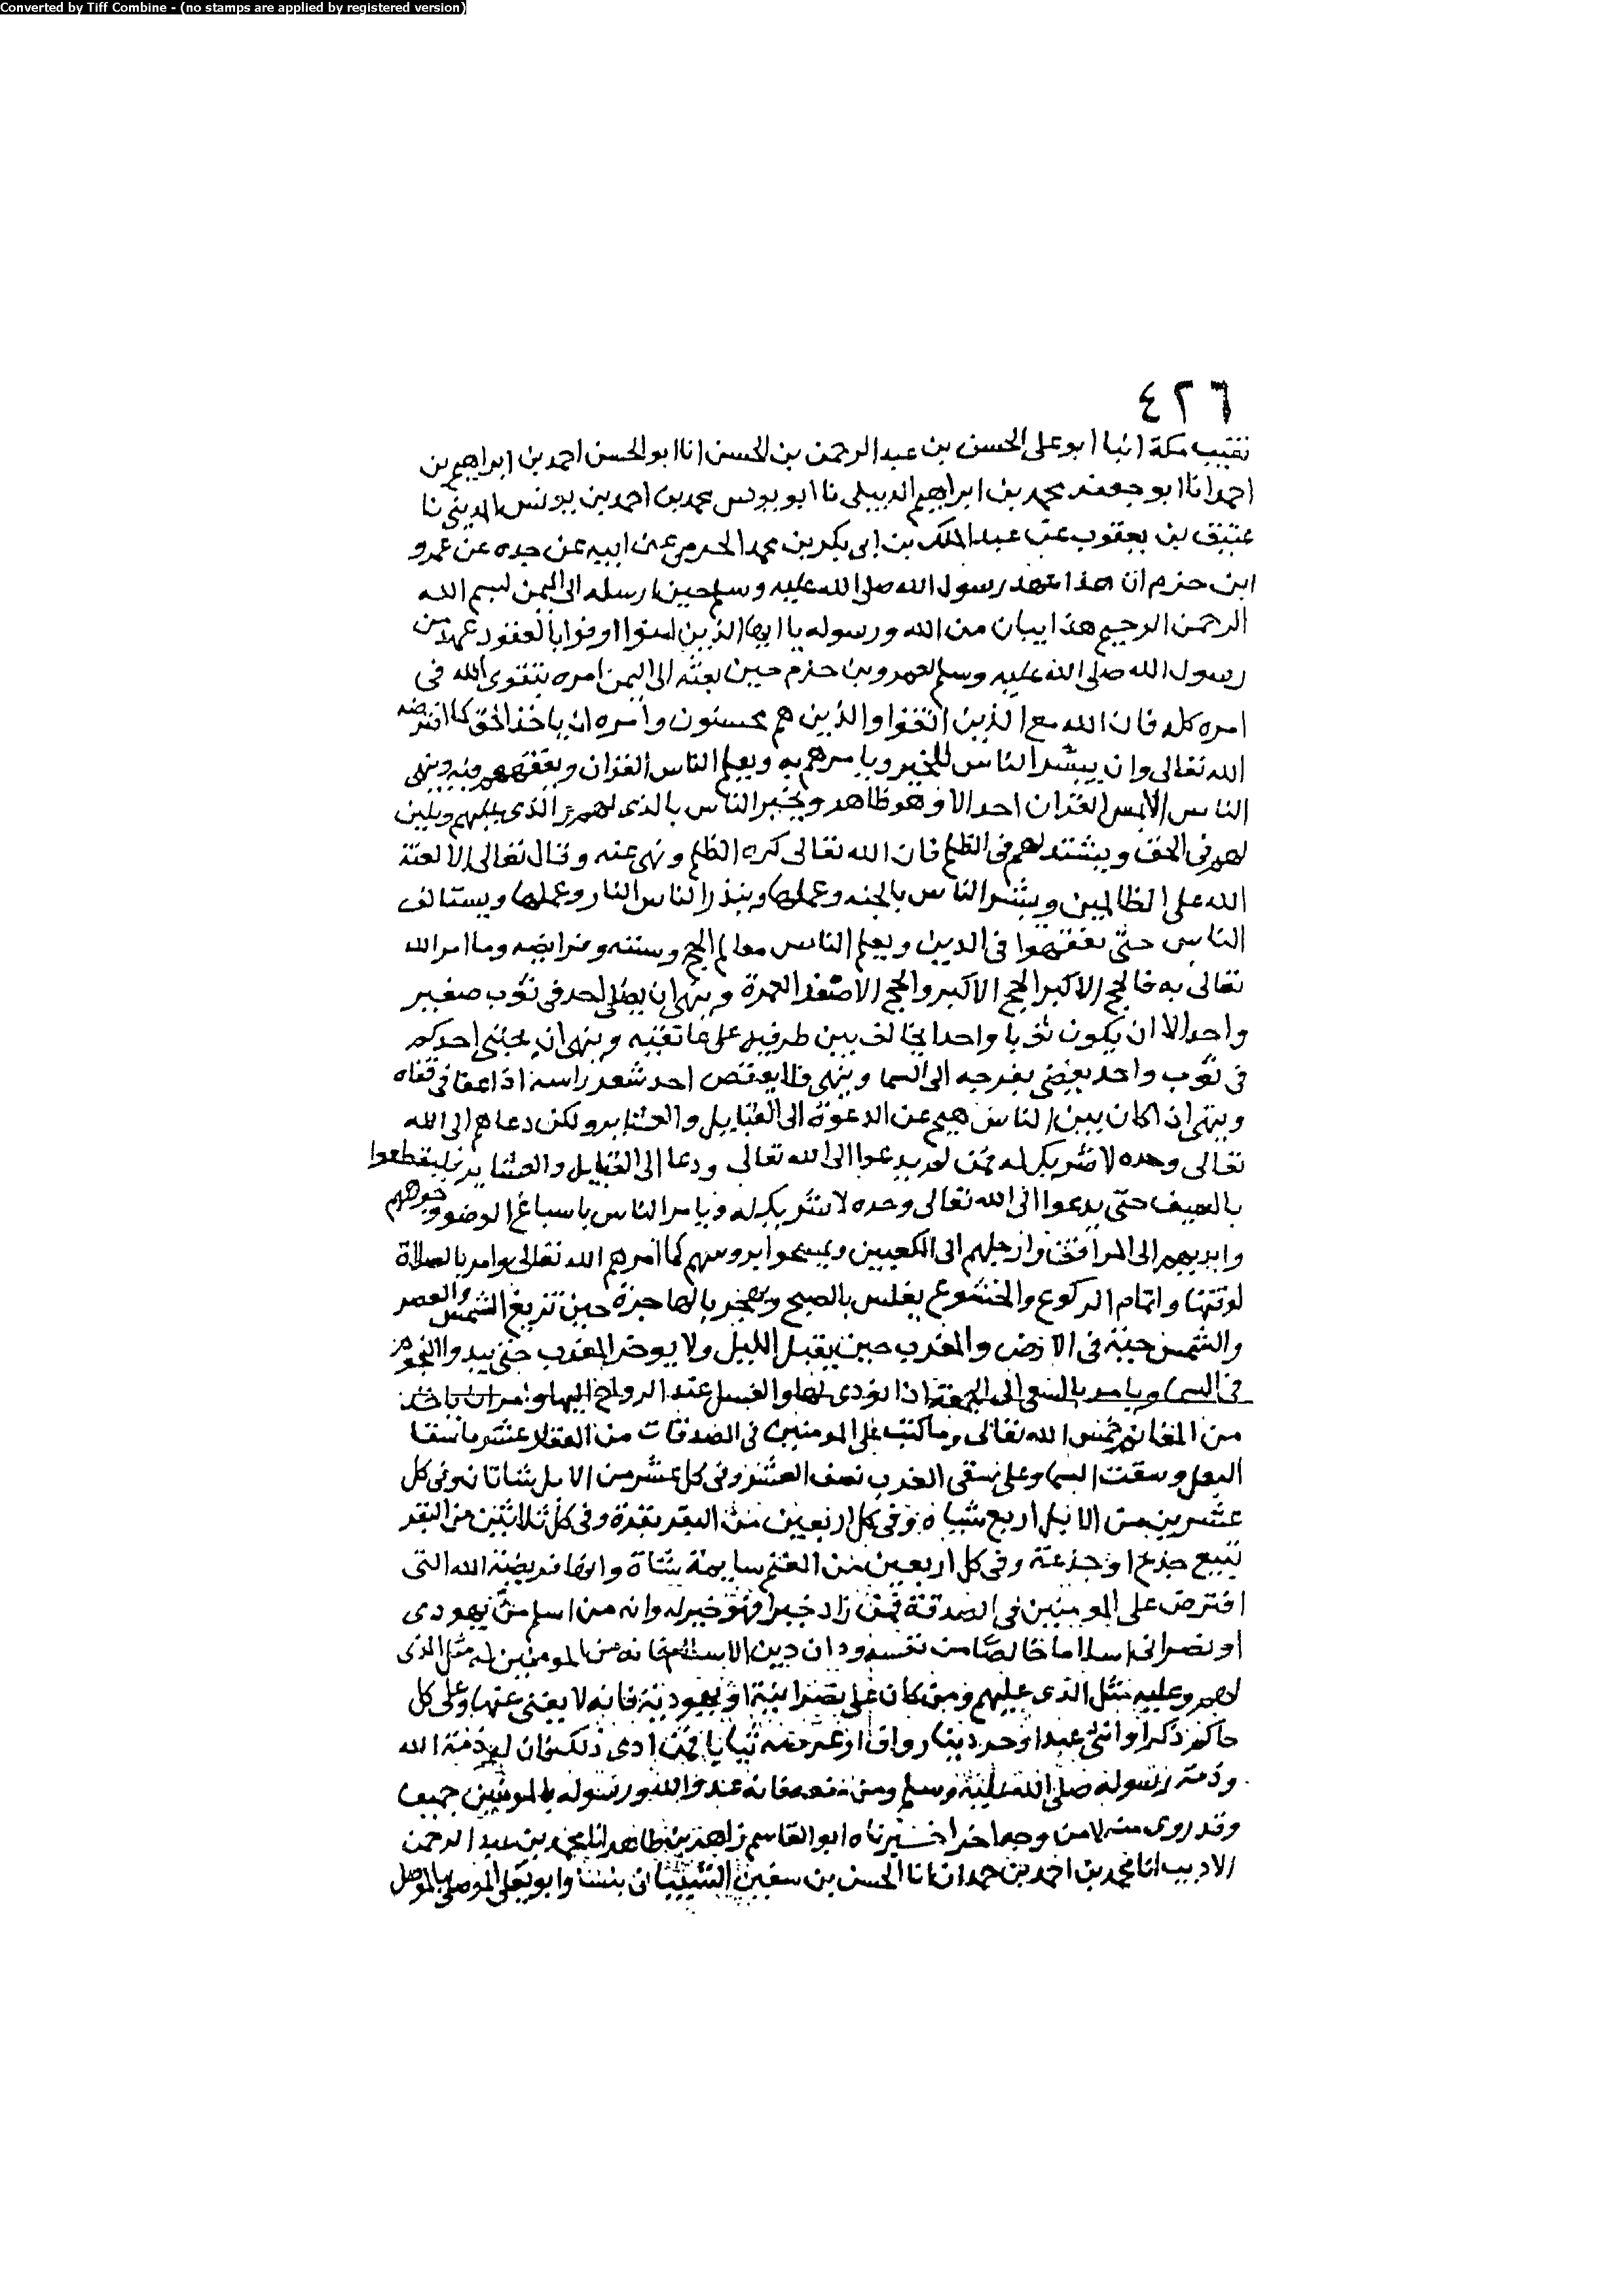 Converted by Tiff Combine - (no stamps are applied by registered version)
٤٢٦
نقيب مكة انبا ابو على الحسن بن عبد الرحمن بن الحسن انا ابو الحسن احمد بن ابراهيم بن
احمد انا ابو جعفر محمد بن ابراهيم الديبلى نا ابو يونس محمد بن احمد بن يونس المدينى نا
عتيق بن يعقوب عن عبد الملك بن ابى بكر بن محمد الحزمى عن ابيه عن جده عن عمرو
ابن حزم ان هذا عهد رسول الله صلى الله عليه وسلم حين ارسله الى اليمن بسم الله
الرحمن الرحيم هذا بيان من الله ورسوله يا ايها الذين امنوا اوفوا بالعقود عهد من
رسول الله صلى الله عليه وسلم لعمرو بن حزم حين بعثه الى اليمن امره بتقوى الله فى
امره كله فان الله مع الذين اتقوا والذين هم محسنون وامره ان ياخذ الحق كما افترضه
الله تعالى وان يبشر الناس للخير ويامرهم به ويعلم الناس القران ويفقههم فيه وينهى
الناس لا يمس القران احد الا وهو ظاهر ويخبر الناس بالذى لهم و الذى عليهم ويلين
لهم فى الحق ويشتد لهم فى الظلم فان الله تعالى كره الظلم ونهى عنه وقال تعالى الا لعنة
الله على الظالمين ويبشر الناس بالجنه وعملها وينذر الناس النار وعملها ويستالف
الناس حتى تفقهوا فى الدين ويعلم الناس معالم الحج وسننه وفرايضه وما امر الله
تعالى به فالحج الاكبر الحج الاكبر والحج الاصغر العمرة وينهى ان يصلى احد فى ثوب صغير
واحد الا ان يكون ثوبا واحدا يخالف بين طرفيه على عاتقيه وينهى ان يحتبى احدكم
فى ثوب واحد يفضى بفرجه الى السما وينهى فلا يعقص احد شعر راسه اذا عفا فى قفاه
وينهى ان اكان بين الناس هيج عن الدعوة الى القبايل والعشاير ولكن دعاهم الى الله
تعالى وحده لا شريك له فمن لم يدعوا الى الله تعالى ودعا الى القبايل والعشاير فليقطعوا
بالسيف حتى يدعوا الى الله تعالى وحده لا شريك له ويامر الناس باسباغ الوضو وجوههم
وايديهم الى المرافق وارجلهم الى الكعبين ويمسحوا بروسهم كما امرهم الله تعالى وامر بالصلاة
لوقتها واتمام الركوع والخشوع يغلس بالصبح ويهجر بالهاجرة حين تزيغ الشمس والعصر
والشمس حية فى الارض والمغرب حين يقبل الليل ولا يوخر المغرب حتى يبدوا النجوم
فى السما ويامر بالسعى الى الجمعة اذا نودى لها والغسل عند الرواح اليها وامر ان ياخذ
من المغانم خمس الله تعالى وما كتب على المومنين فى الصدقات من العقار عشر ما سقا
البعل وسقت السما وعلى سقى الغرب نصف العشر وفى كل عشر من الابل شاتان وفى كل
عشرين من الابل اربع شياه وفى كل اربعين من البقر بقرة وفى كل ثلاثين من البقر
تبيع جذع او جذعة وفى كل اربعين من الغنم سايمة شاة وانها فريضة الله التى
افترض على المومنين فى الصدقة فمن زاد خيرا فهو خير له وانه من اسلم من يهودى
او نصرانى اسلاما خالصا من نفسه ودان دين الاسلام فانه من المومنين له مثل الذى
لهم وعليه مثل الذى عليهم ومن كان على نصرانية او يهودية فانه لا يفتى عنها وعلى كل
حاكم ذكر او انثى عبد او حر دينار واف او عرضه ثيابا فمن ادى ذلك فان له ذمة الله
وذمة رسوله صلى الله عليه وسلم ومن منعه فانه عدو الله ورسوله والمومنين جميعا
وقد روى من وجه اخر اخبرناه ابو القاسم زاهر بن طاهر انا محمد بن عبد الرحمن
الاديب انا محمد بن احمد بن حمدان انا الحسن بن سفين الشيبانى بنسا وابو يعلى الموصلى بالموصل